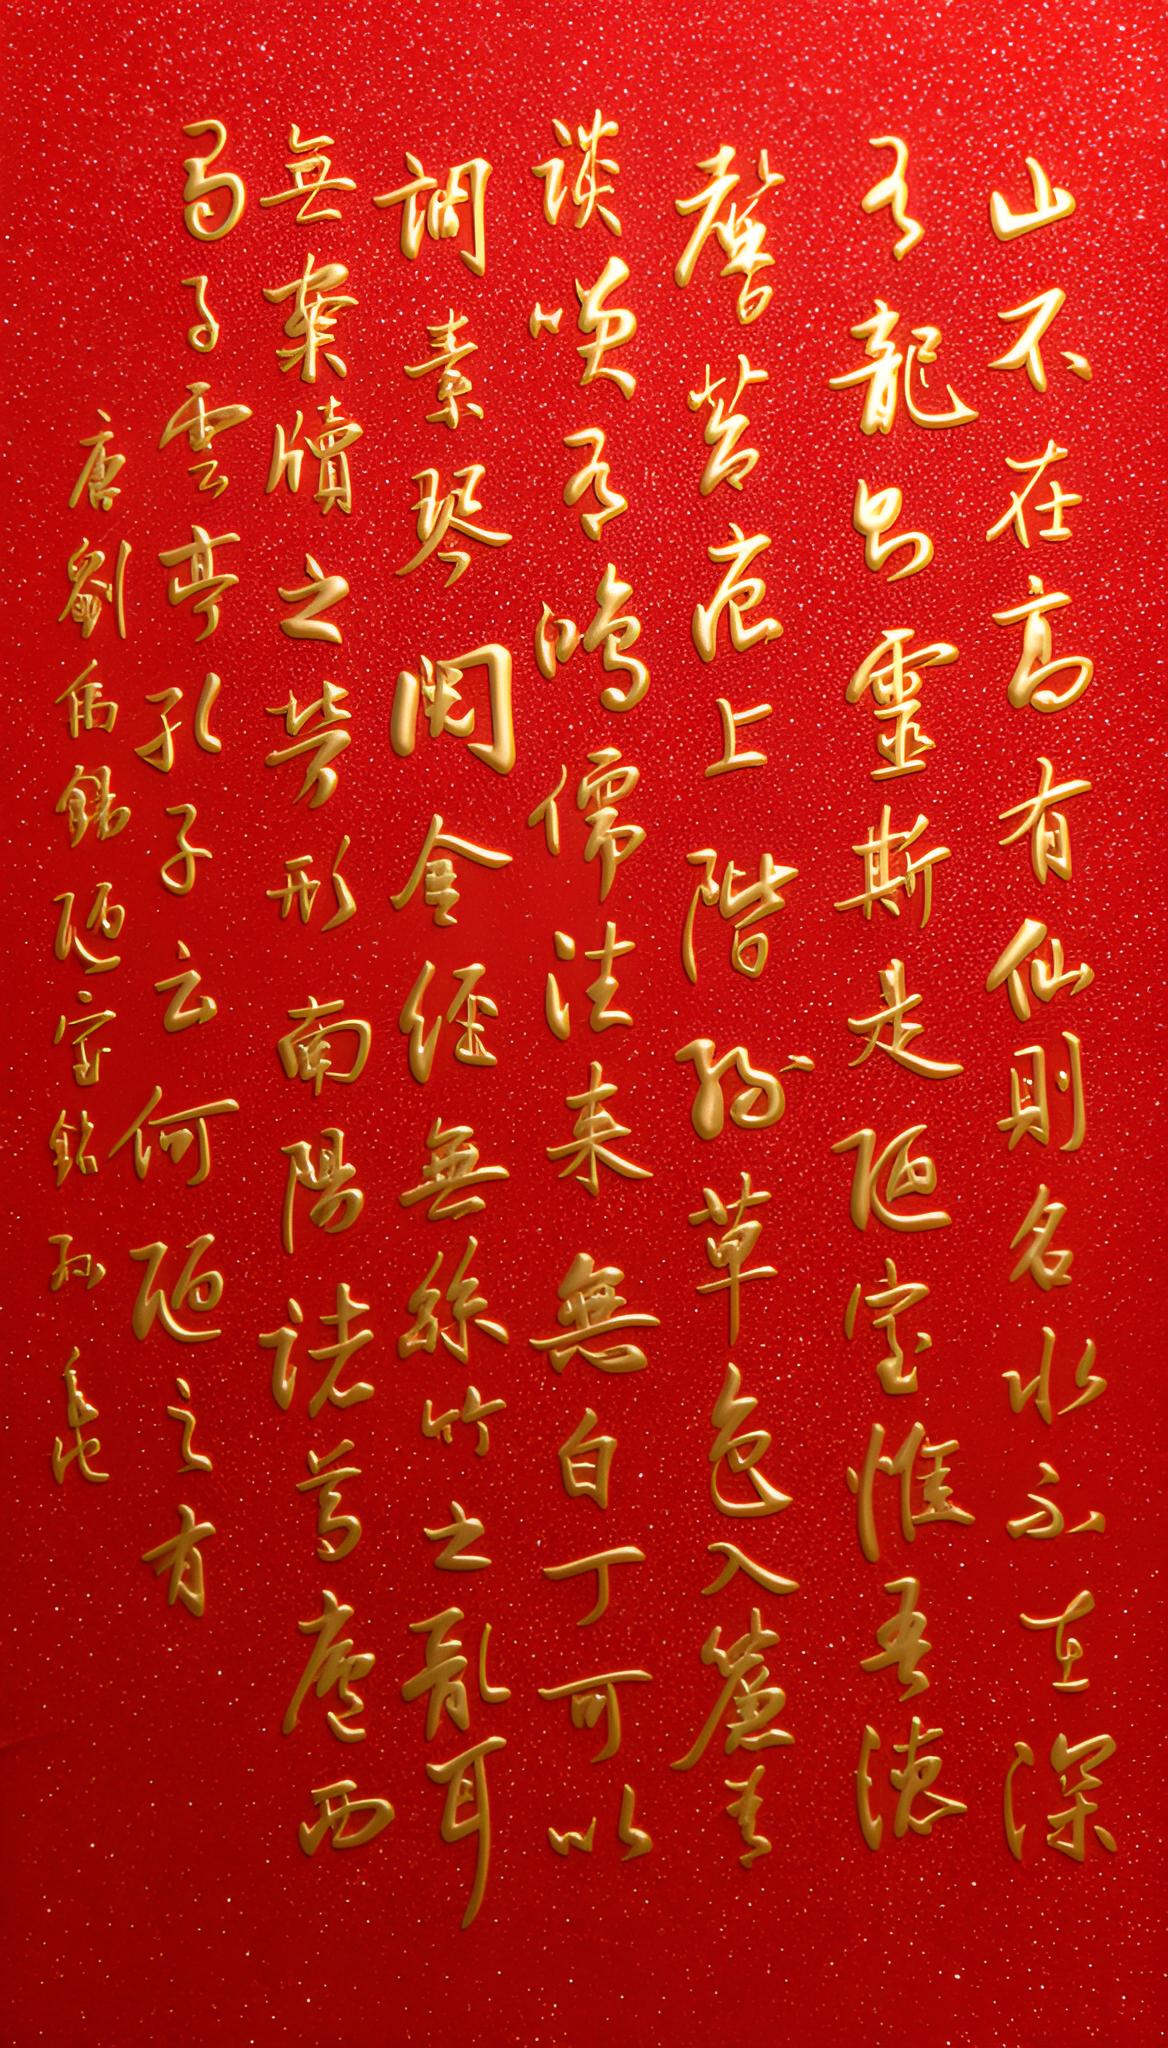 山不在高有仙則名水不在深
有龍則靈斯是陋室惟吾德
馨苔痕上階綠草色入簾青
談笑有鴻儒往来無白丁可以
調素琴閱金經無絲竹之亂耳
無案牘之勞形南陽諸葛廬西
蜀子雲亭孔子云何陋之有
唐劉禹錫陋室銘